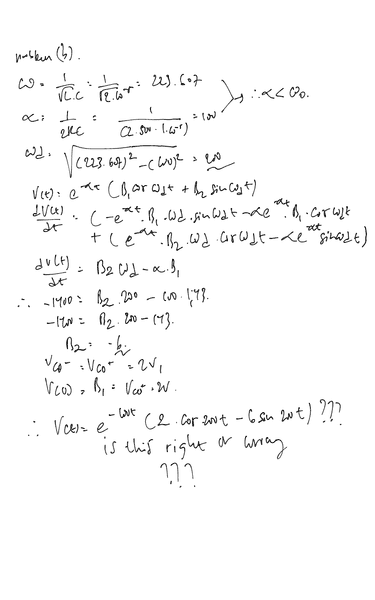 problem (b).
ω = 1/√L.C = 1/√2.10⁻⁵ = 223.607
α = 1/2RC = 1/(2.500.1.10⁻⁵) = 100 } ∴ α < ω₀.
ωd = √(223.607)² - (100)² = 200
V(t) = e^-αt (B₁ cos ωdt + B₂ sin ωdt)
dV(t)/dt = (-e^-αt . B₁ . ωd . sin ωdt - αe^-αt . B₁ . cos ωdt
+ (e^-αt . B₂ . ωd . cos ωdt - αe^-αt sin ωdt)
dV(t)/dt = B₂ ωd - α . B₁
∴ -1400 = B₂ . 200 - 100
-1400 = B₂ . 200
B₂ = -6
V(0)⁻ = V(0)⁺ = 2V,
V(0) = B₁ = V(0)⁺ = 2V.
∴ V(t) = e^-100t (2 . cos 200t - 6 sin 200t) ???
is this right or wrong
???